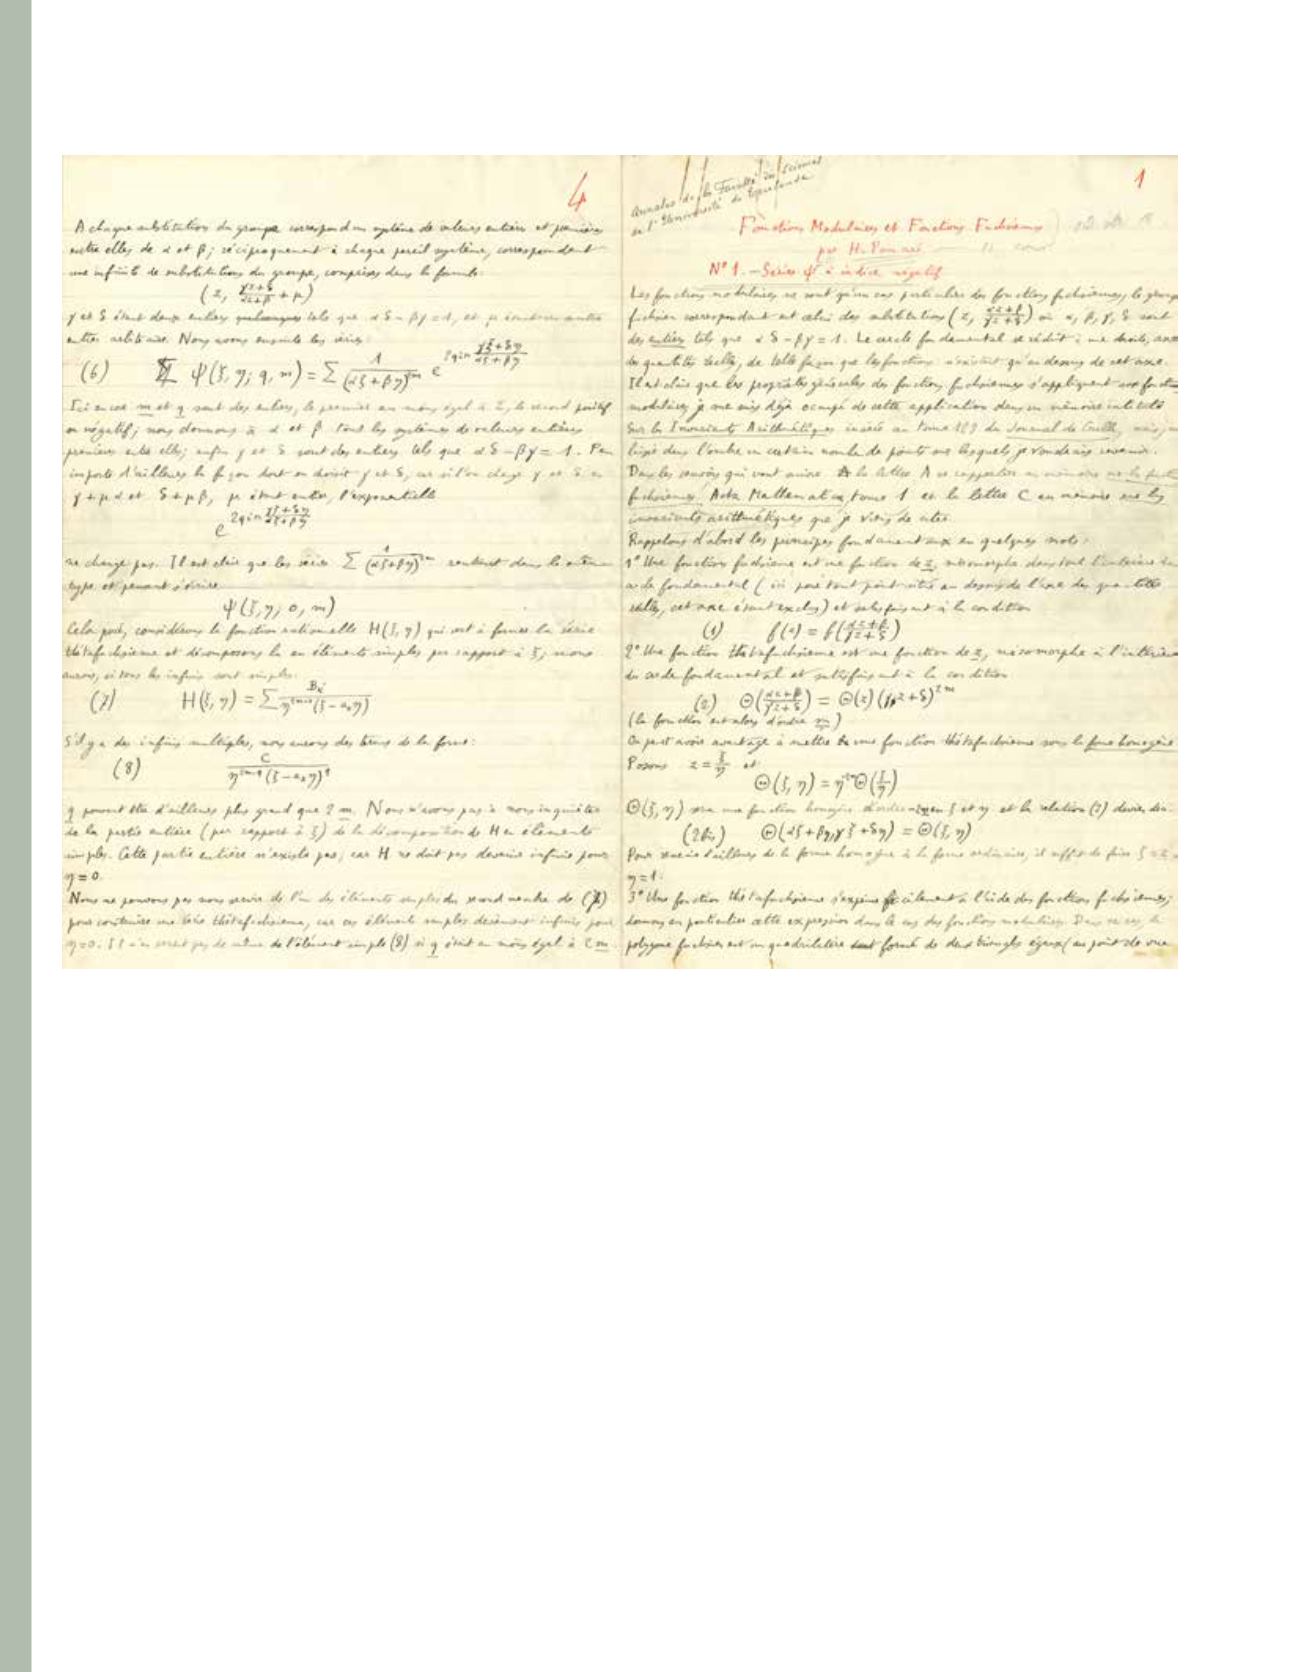 4
A chaque substitution du groupe correspond un système de valeurs entières et premières
entre elles de α et β; réciproquement à chaque pareil système, correspondent
une infinité de substitutions du groupe, comprises dans la formule:
(z, (γz+δ)/(αz+β) + μ)
γ et δ étant deux entiers quelconques tels que αδ - βγ = 1, et μ étant un autre
entier arbitraire. Nous avons ensuite les séries:
(6) ψ(ξ, η; q, m) = Σ 1/(αξ+βη)^2m e^(2qiπ (γξ+δη)/(αξ+βη))
Ici encore m et q sont des entiers, le premier au moins égal à 2, le second positif
ou négatif; nous donnons à α et β tous les systèmes de valeurs entières
premières entre elles; enfin γ et δ sont des entiers tels que αδ - βγ = 1. Peu
importe d'ailleurs la façon dont on choisit γ et δ, car si l'on change γ et δ en
γ+μα et δ+μβ, μ étant entier, l'exponentielle
e^(2qiπ (γξ+δη)/(αξ+βη))
ne change pas. Il est clair que les séries Σ 1/(αξ+βη)^2m rentrent dans le même
type et peuvent s'écrire
ψ(ξ, η; 0, m)
Cela posé, considérons la fonction rationnelle H(ξ, η) qui sert à former la série
thétafuchsienne et décomposons la en éléments simples par rapport à ξ; nous
aurons, si tous les infinis sont simples:
(7) H(ξ, η) = Σ B/(η^(2m-1)(ξ - aη))
S'il y a des infinis multiples, nous aurons des termes de la forme:
(8) C/(η^(2m-q)(ξ - aη)^q)
q pouvant être d'ailleurs plus grand que 2m. Nous n'avons pas à nous inquiéter
de la partie entière (par rapport à ξ) de la décomposition de H en éléments
simples. Cette partie entière n'existe pas; car H ne doit pas devenir infinie pour
η = 0.
Nous ne pouvons pas nous servir de l'un des éléments simples du second membre de (7)
pour construire une série thétafuchsienne, car ces éléments simples deviennent infinis pour
η=0. Il n'en serait pas de même de l'élément simple (8) si q était au moins égal à 2m
1
Annales de la Faculté des Sciences
de l'Université de Toulouse
Fonctions Modulaires et Fonctions Fuchsiennes
par H. Poincaré
N° 1. - Séries ψ à indice négatif
Les fonctions modulaires ne sont qu'un cas particulier des fonctions fuchsiennes, le groupe
fuchsien correspondant est celui des substitutions (z, (αz+β)/(γz+δ)) où α, β, γ, δ sont
des entiers tels que αδ - βγ = 1. Le cercle fondamental se réduit à une droite, axe
des quantités réelles, de telle façon que les fonctions n'existent qu'au dessus de cet axe.
Il est clair que les propriétés générales des fonctions fuchsiennes s'appliquent aux fonctions
modulaires; je me suis déjà occupé de cette application dans un mémoire intitulé
Sur les Invariants Arithmétiques inséré au tome 129 du Journal de Crelle, mais j'ai
laissé dans l'ombre un certain nombre de points sur lesquels je voudrais revenir.
Dans les renvois qui vont suivre la lettre A se rapportera au mémoire sur les fonct
fuchsiennes, Acta Mathematica, tome 1 et la lettre C au mémoire sur les
invariants arithmétiques que je viens de citer.
Rappelons d'abord les principes fondamentaux en quelques mots:
1° Une fonction fuchsienne est une fonction de z, méromorphe dans tout l'intérieur du
cercle fondamental (ici pour tout point situé au dessus de l'axe des quantités
réelles, cet axe étant exclu) et satisfaisant à la condition
(1) f(z) = f((αz+β)/(γz+δ))
2° Une fonction thétafuchsienne est une fonction de z, méromorphe à l'intérieur
du cercle fondamental et satisfaisant à la condition
(2) Θ((αz+β)/(γz+δ)) = Θ(z)(γz+δ)^2m
(la fonction est alors d'ordre m)
On peut avoir avantage à mettre une fonction thétafuchsienne sous la forme homogène
Posons z = ξ/η et
Θ(ξ, η) = η^-2m Θ(ξ/η)
Θ(ξ, η) sera une fonction homogène d'ordre -2m en ξ et η et la relation (2) deviendra
(2bis) Θ(αξ+βη, γξ+δη) = Θ(ξ, η)
Pour revenir d'ailleurs de la forme homogène à la forme ordinaire, il suffit de faire ξ = z
η = 1.
3° Une fonction thétafuchsienne s'exprime facilement à l'aide des fonctions fuchsiennes;
donnons en particulier cette expression dans le cas des fonctions modulaires. Dans ce cas le
polygone fuchsien est un quadrilatère formé de deux triangles égaux (au point de vue